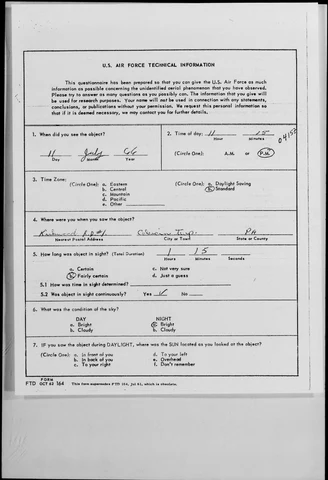 U.S. AIR FORCE TECHNICAL INFORMATION
This questionnaire has been prepared so that you can give the U.S. Air Force as much
information as possible concerning the unidentified aerial phenomenon that you have observed.
Please try to answer as many questions as you possibly can. The information that you give will
be used for research purposes. Your name will not be used in connection with any statements,
conclusions, or publications without your permission. We request this personal information so
that if it is deemed necessary, we may contact you for further details.
1. When did you see the object?
11 July 66
Day Month Year
2. Time of day: 11 15
Hour Minutes
(Circle One): A.M. or P.M.
3. Time Zone:
(Circle One): a. Eastern
b. Central
c. Mountain
d. Pacific
e. Other
(Circle One): a. Daylight Saving
b. Standard
4. Where were you when you saw the object?
R.D.#1 Twp. PA
Nearest Postal Address City or Town State or County
5. How long was object in sight? (Total Duration) 1 15
Hours Minutes Seconds
a. Certain c. Not very sure
b. Fairly certain d. Just a guess
5.1 How was time in sight determined?
5.2 Was object in sight continuously? Yes ✓ No
6. What was the condition of the sky?
DAY NIGHT
a. Bright a. Bright
b. Cloudy b. Cloudy
7. IF you saw the object during DAYLIGHT, where was the SUN located as you looked at the object?
(Circle One): a. In front of you d. To your left
b. In back of you e. Overhead
c. To your right f. Don't remember
FORM
FTD OCT 62 164 This form supersedes FTD 164, Jul 61, which is obsolete.